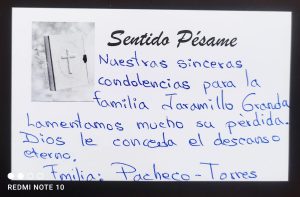 Sentido Pésame
Nuestras sinceras
condolencias para la
familia Jaramillo Granda
Lamentamos mucho su pèrdida.
Dios le conceda el descanso
eterno.
Fmilia: Pacheco-Torres
REDMI NOTE 10